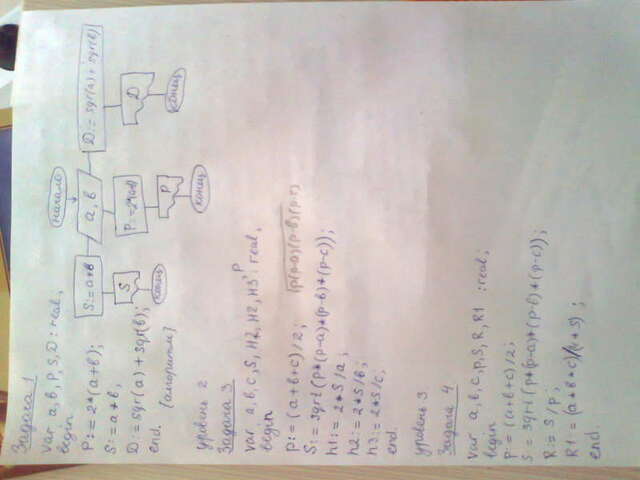 Задача 1
var a, b, P, S, D : real;
begin
P:= 2*(a+b);
S:= a*b;
D:= sqr(a)+sqr(b);
end. (алгоритм)
начало
a, b
S:= a*b
P:=2*(a+b)
D:= sqr(a)+sqr(b)
S
P
D
конец
конец
конец
уровень 2
Задача 3
var a, b, c, S, H2, H2, H3, P : real;
begin
p:= (a+b+c)/2; (p(p-a)(p-b)(p-c)
S:= sqrt(p*(p-a)*(p-b)*(p-c));
h1:= 2*S/a;
h2:= 2*S/b;
h3:= 2*S/c;
end.
уровень 3
Задача 4.
var a, b, c, p, S, R, R1 :real;
begin
p:= (a+b+c)/2;
S:= sqrt(p*(p-a)*(p-b)*(p-c));
R:= S/p;
R1:= (a*b*c)/(4*S);
end.